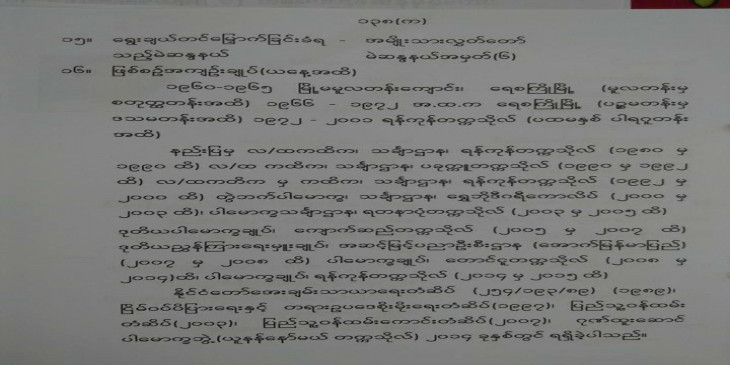 ၁၃၈(က)
၁၅။ ရွေးချယ်တင်မြှောက်ခြင်းခံရ - အမျိုးသားလွှတ်တော်
သည့်မဲဆန္ဒနယ် မဲဆန္ဒနယ်အမှတ်(၆)
၁၆။ ဖြစ်စဉ်အကျဉ်းချုပ်(ယနေ့အထိ)
၁၉၆၀-၁၉၆၅ မြို့မမူလတန်းကျောင်း၊ ရေစကြိုမြို့ (မူလတန်းမှ
စတုတ္ထတန်းအထိ) ၁၉၆၆ - ၁၉၇၂ အ.ထ.က ရေစကြိုမြို့ (ပဉ္စမတန်းမှ
ဒသမတန်းအထိ) ၁၉၇၂ - ၂၀၀၁ ရန်ကုန်တက္ကသိုလ် (ပထမနှစ် ပါရဂူတန်း
အထိ)
နည်းပြမှ လ/ထကထိက၊ သင်္ချာဌာန၊ ရန်ကုန်တက္ကသိုလ် (၁၉၈၀ မှ
၁၉၉၀ ထိ) လ/ထ ကထိက၊ သင်္ချာဌာန၊ ပခုက္ကူတက္ကသိုလ် (၁၉၉၀ မှ ၁၉၉၂
ထိ) လ/ထကထိက မှ ကထိက၊ သင်္ချာဌာန၊ ရန်ကုန်တက္ကသိုလ် (၁၉၉၂ မှ
၂၀၀၀ ထိ) တွဲဘက်ပါမောက္ခ၊ သင်္ချာဌာန၊ ရွှေဘိုဒီဂရီကောလိပ် (၂၀၀၀ မှ
၂၀၀၃ ထိ)၊ ပါမောက္ခသင်္ချာဌာန၊ ရတနာပုံတက္ကသိုလ် (၂၀၀၃ မှ ၂၀၀၅ ထိ)
ဒုတိယပါမောက္ခချုပ်၊ ကျောက်ဆည်တက္ကသိုလ် (၂၀၀၅ မှ ၂၀၀၇ ထိ)
ဒုတိယညွှန်ကြားရေးမှူးချုပ်၊ အဆင့်မြင့်ပညာဦးစီးဌာန (အောက်မြန်မာပြည်)
(၂၀၀၇ မှ ၂၀၀၈ ထိ) ပါမောက္ခချုပ်၊ တောင်ငူတက္ကသိုလ် (၂၀၀၈ မှ
၂၀၁၄)ထိ၊ ပါမောက္ခချုပ်၊ ရန်ကုန်တက္ကသိုလ် (၂၀၁၄ မှ ၂၀၁၅ ထိ)
နိုင်ငံတော်အေးချမ်းသာယာရေးတံဆိပ် (၂၅၄/၁၉၃/၈၉) (၁၉၈၉)၊
ငြိမ်ဝပ်ပိပြားရေးနှင့် တရားဥပဒေစိုးမိုးရေးတံဆိပ်(၁၉၉၇)၊ ပြည်သူ့ဝန်ထမ်း
တံဆိပ်(၂၀၀၃)၊ ပြည်သူ့ဝန်ထမ်းကောင်းတံဆိပ်(၂၀၀၇)၊ ဂုဏ်ထူးဆောင်
ပါမောက္ခဘွဲ့ (ယူနန်နော်မယ် တက္ကသိုလ်) ၂၀၁၄ ခုနှစ်တွင် ရရှိခဲ့ပါသည်။